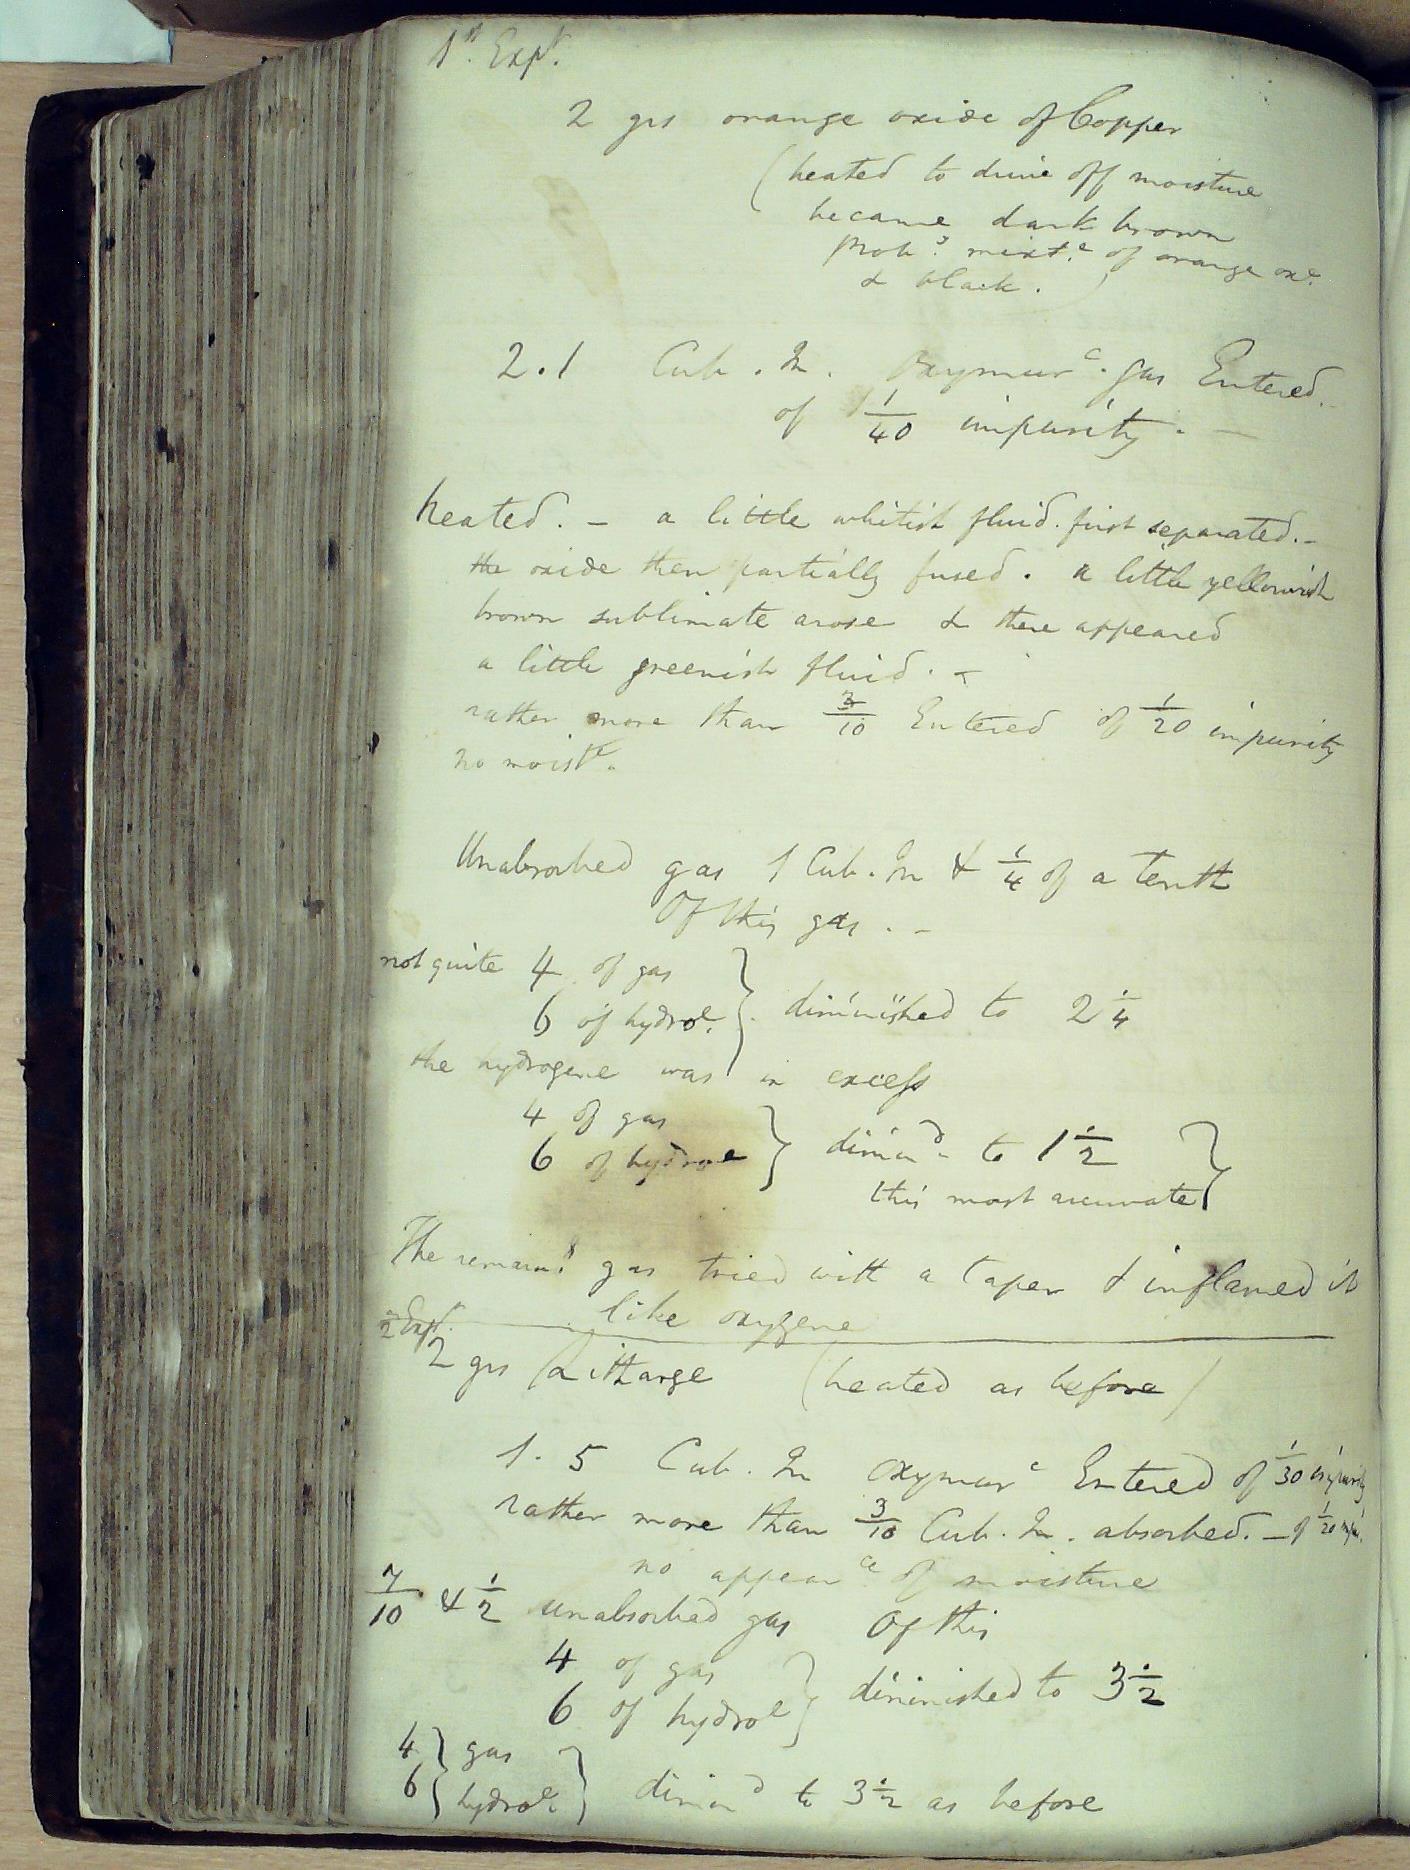 1st. Expt.
2 grs orange oxide of Copper
(heated to drive off moisture
became dark brown
prob.y mixt.e of orange oxe.
& black. )
2.1 Cub. In. Oxymurc. gas Entered.
of 1/40 impurity. -
heated. - a little whitish fluid. first separated. -
the oxide then partially fused. a little yellowish
brown sublimate arose & there appeared
a little greenish fluid. -
rather more than 3/10 Entered of 1/20 impurity
no moiste.
Unabsorbed gas 1 Cub. In & 1/4 of a tenth
Of this gas. -
not quite 4 of gas
6 of hydroe. } diminished to 2 1/4
the hydrogene was in excess
4 of gas
6 of hydroe } dimind. to 1 1/2
this most accurate }
The remaing. gas tried with a taper & inflamed it
like oxygene
2 Expt.
2 grs Litharge (heated as before)
1.5 Cub. In Oxymurc Entered of 1/30 impurity
rather more than 3/10 Cub. In. absorbed. - of 1/20 impu.
no appearce of moisture
7/10 & 1/2 unabsorbed gas Of this
4 of gas
6 of hydroe } diminished to 3 1/2
4 } gas
6 { hydroe. } dimind to 3 1/2 as before